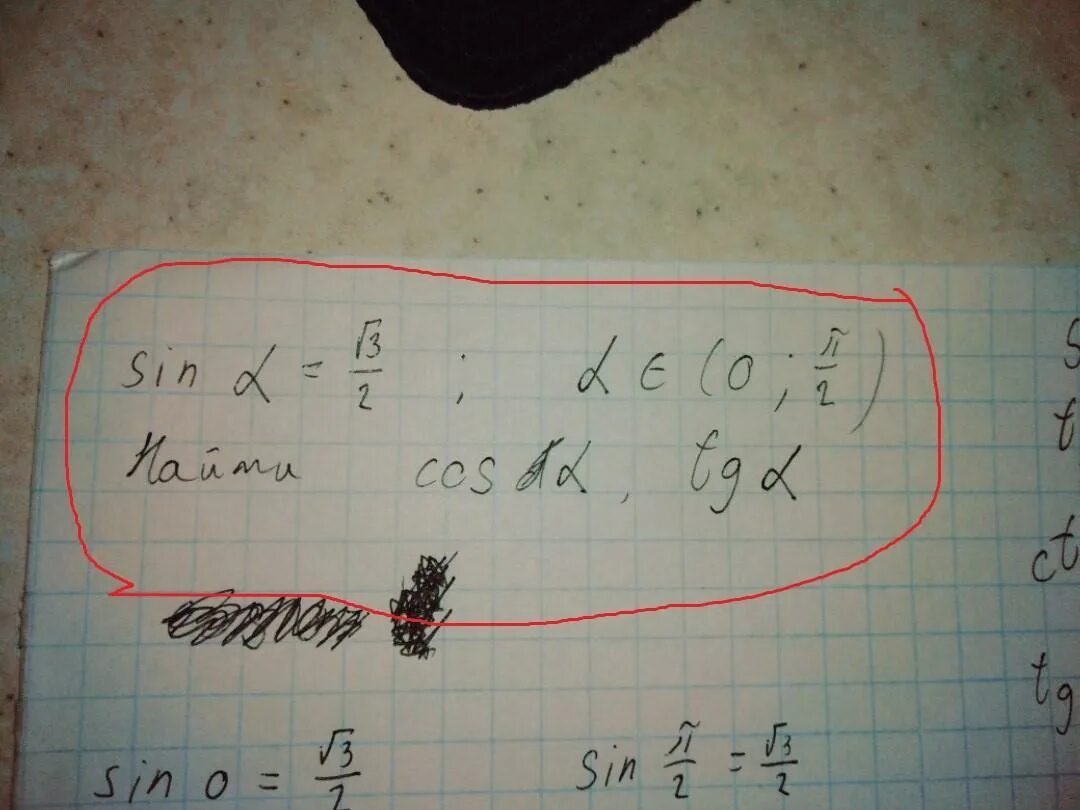 sin α = √3/2 ; α ∈ (0 ; π/2)
Найти cos α, tg α
sin 0 = √3/2 sin π/2 = √3/2
t
ct
tg